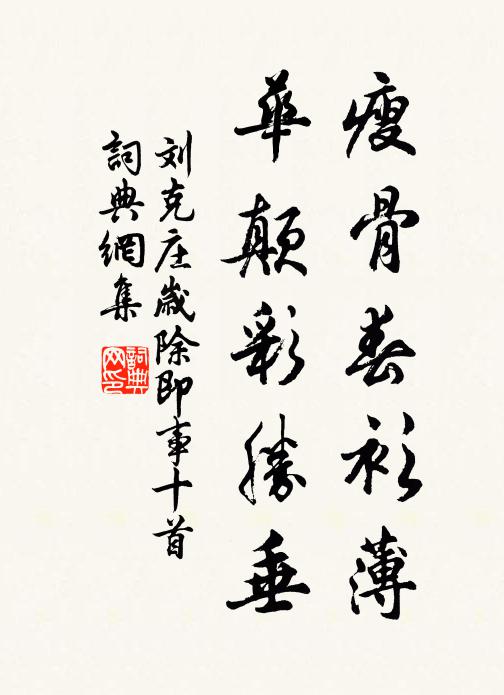 瘦骨春衫薄
華顛彩勝垂
刘克庄歲除即事十首
詞典網集
詞典网印